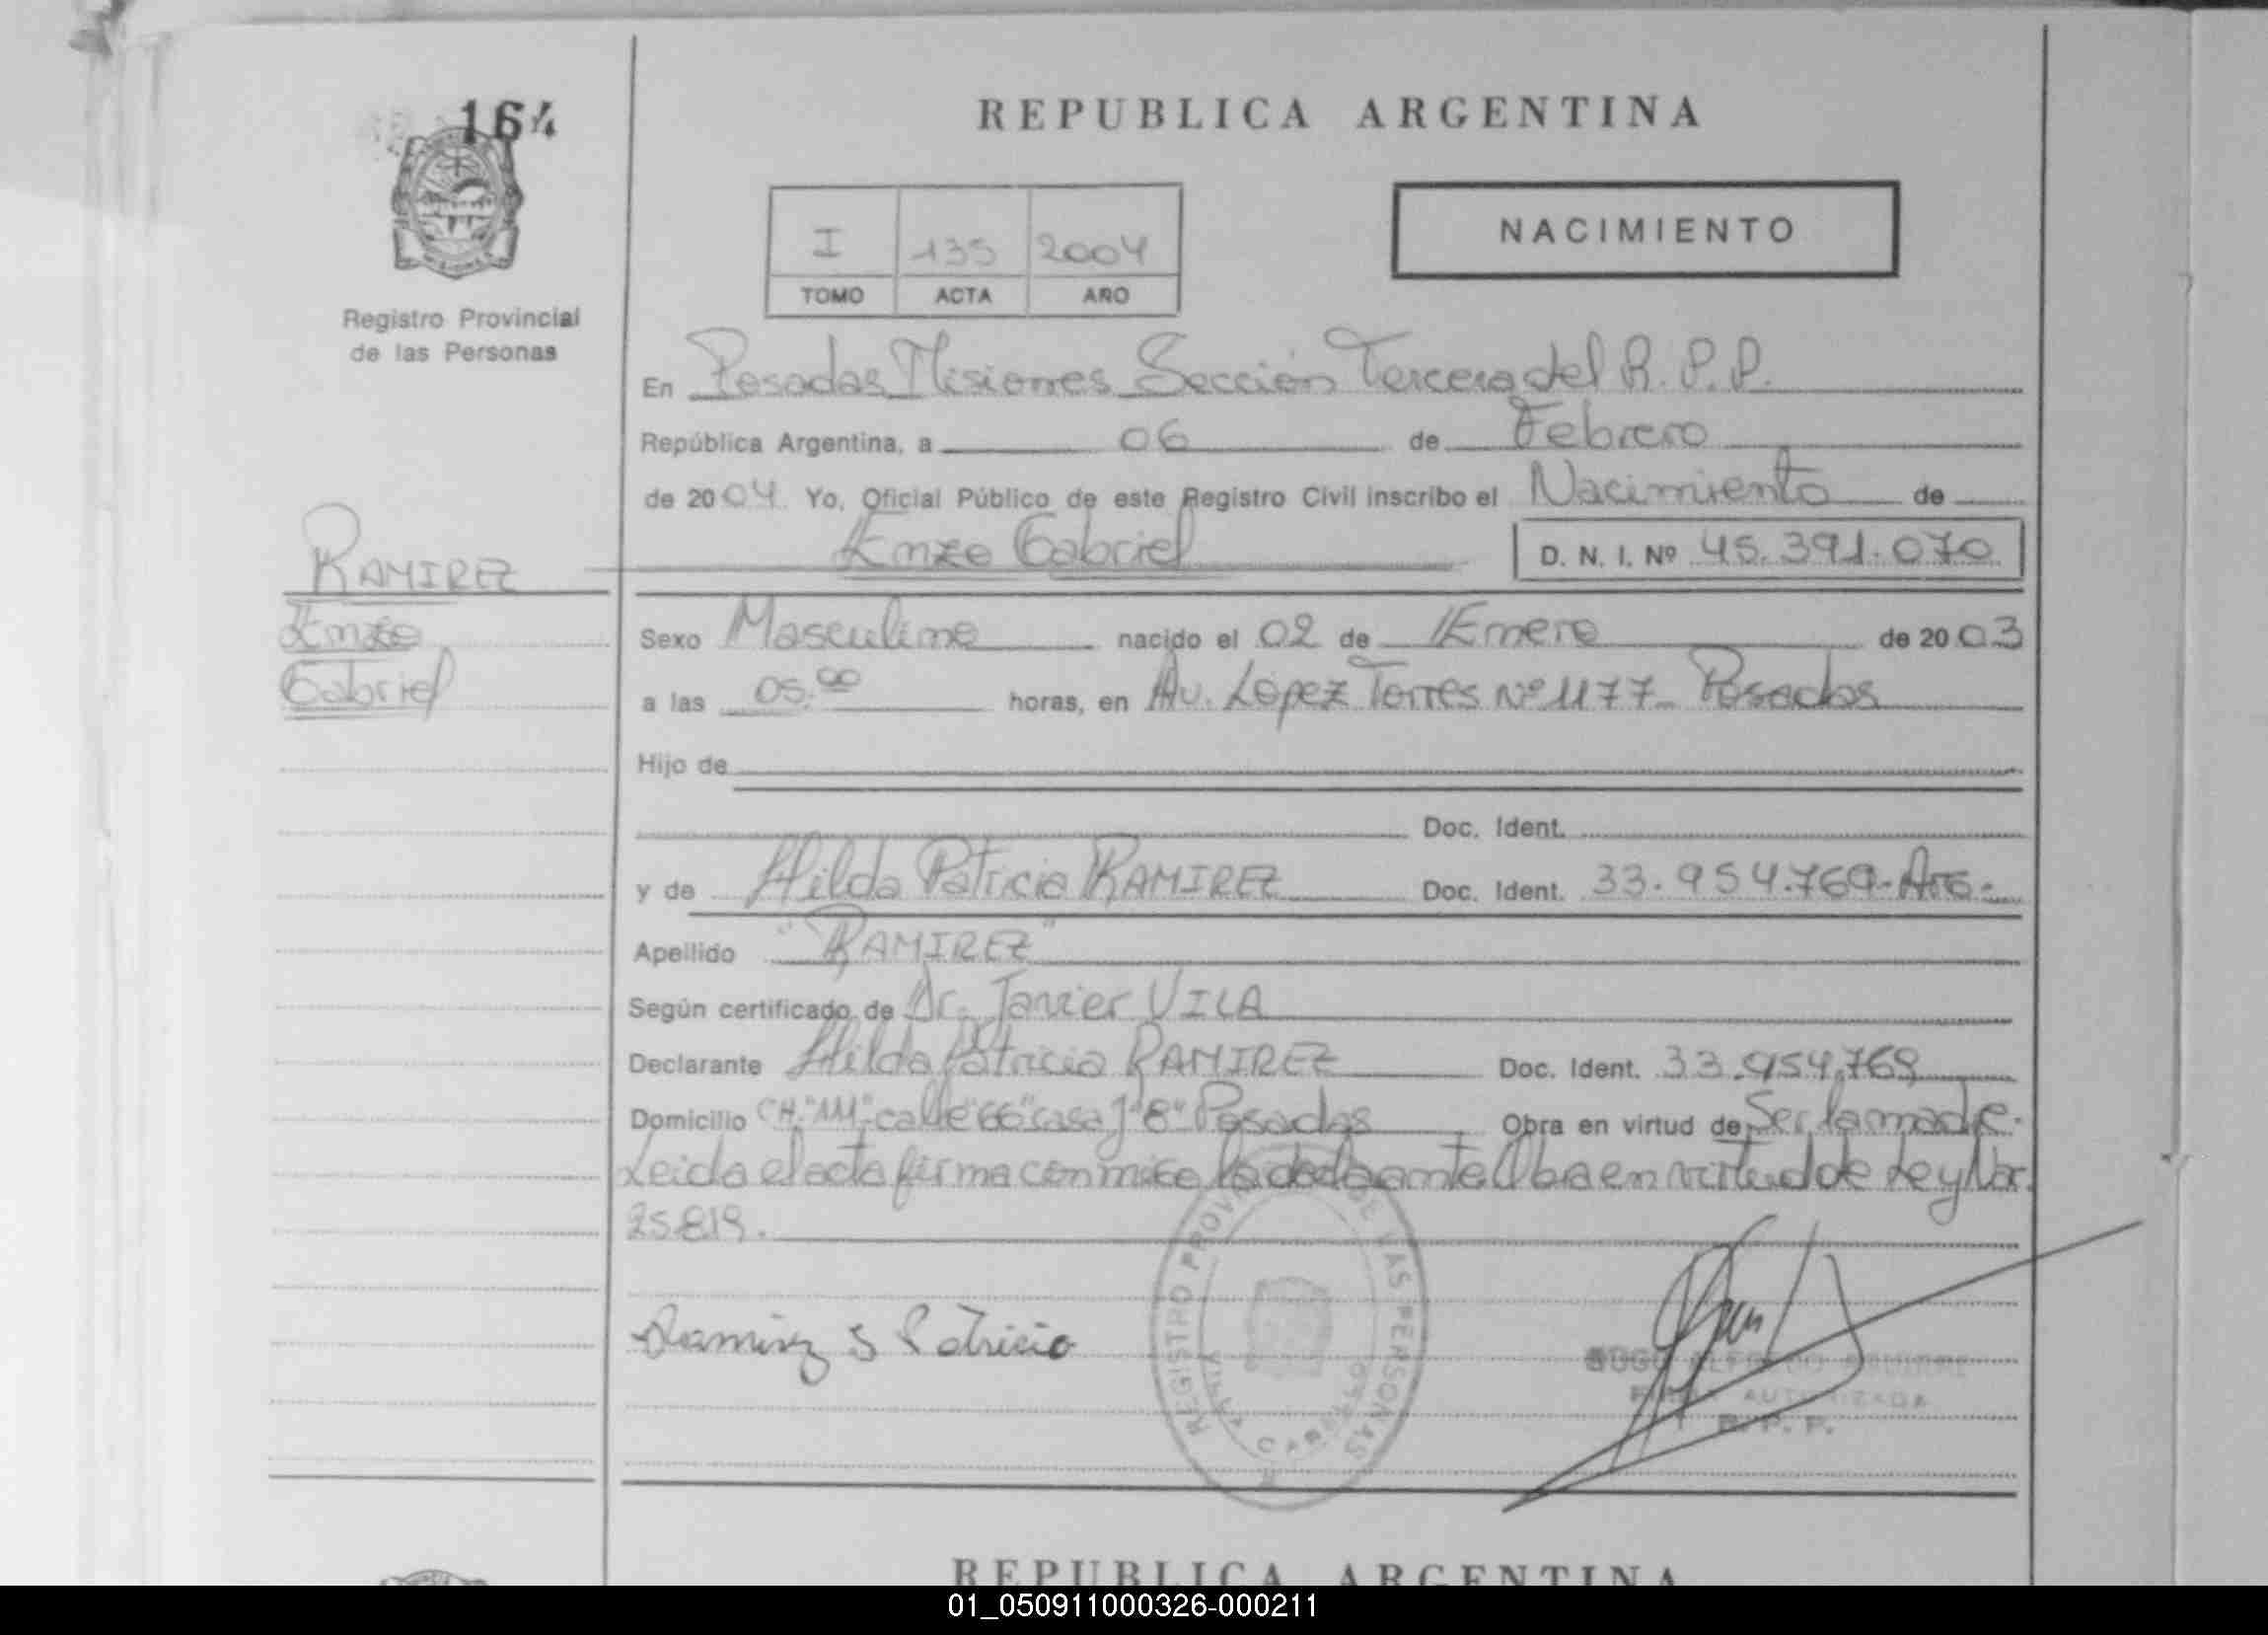 164
REPUBLICA ARGENTINA
I 135 2004
TOMO ACTA AÑO
NACIMIENTO
Registro Provincial
de las Personas
En Posadas Misiones Sección Tercera del R. P. P.
República Argentina, a 06 de Febrero
de 2004. Yo, Oficial Público de este Registro Civil inscribo el Nacimiento de
Enzo Gabriel D. N. I. Nº 45.391.070
RAMIREZ
Enzo
Gabriel
Sexo Masculino nacido el 02 de Enero de 2003
a las 05.00 horas, en Av. López Torres Nº 1177- Posadas
Hijo de
Doc. Ident.
y de Hilda Patricia RAMIREZ Doc. Ident. 33.954.769-Arg.-
Apellido "RAMIREZ"
Según certificado de Dr. Javier VILA
Declarante Hilda Patricia RAMIREZ Doc. Ident. 33.954.769
Domicilio CH."111" calle "66" casa "8" Posadas Obra en virtud de Ser la madre.
Leida el acta firma conmigo la declarante Obra en virtud de Ley Nro.
25.819.
Ramirez Patricia
REGISTRO PROVINCIAL DE LAS PERSONAS
ALFREDO
FIRMA AUTORIZADA
R. P. P.
REPUBLICA ARGENTINA
01_050911000326-000211